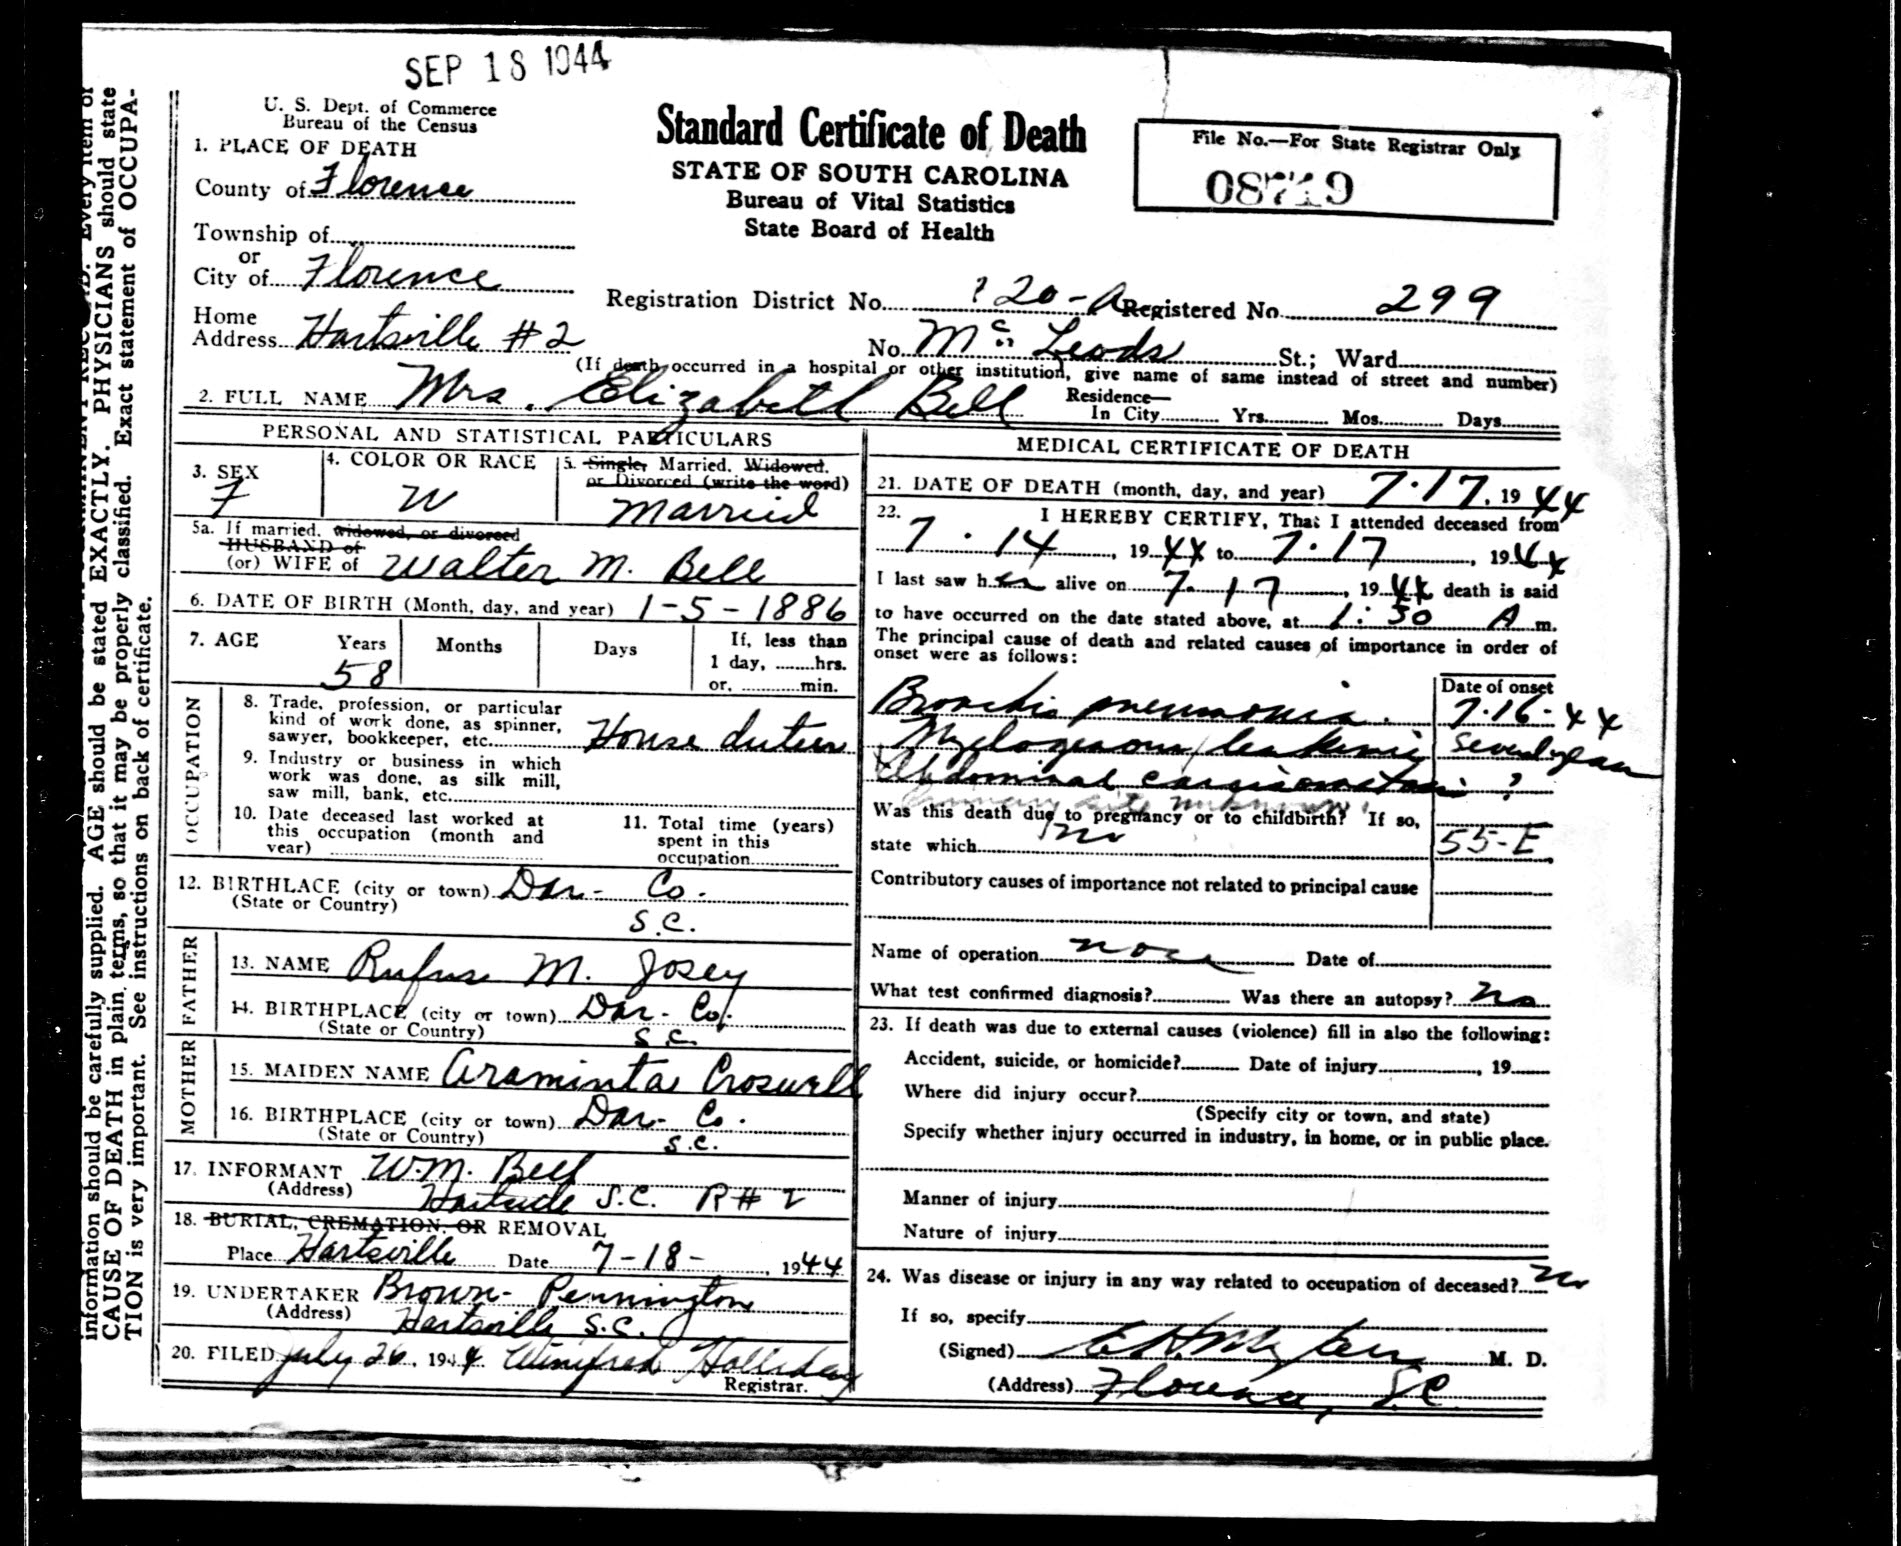 SEP 18 1944
U. S. Dept. of Commerce
Bureau of the Census
Standard Certificate of Death
STATE OF SOUTH CAROLINA
Bureau of Vital Statistics
State Board of Health
File No.—For State Registrar Only
08719
1. PLACE OF DEATH
County of Florence
Township of
or
City of Florence
Registration District No. 20-A Registered No. 299
Home
Address Hartsville #2
No. Mc Leods St.; Ward
(If death occurred in a hospital or other institution, give name of same instead of street and number)
2. FULL NAME Mrs. Elizabeth Bell
Residence—
In City Yrs. Mos. Days
PERSONAL AND STATISTICAL PARTICULARS
3. SEX
F
4. COLOR OR RACE
W
5. Single, Married, Widowed,
or Divorced (write the word)
Married
5a. If married, widowed, or divorced
HUSBAND of
(or) WIFE of Walter M. Bell
6. DATE OF BIRTH (Month, day, and year) 1-5-1886
7. AGE Years Months Days If, less than
58
1 day, hrs.
or, min.
OCCUPATION
8. Trade, profession, or particular
kind of work done, as spinner,
sawyer, bookkeeper, etc. House duties
9. Industry or business in which
work was done, as silk mill,
saw mill, bank, etc.
10. Date deceased last worked at
this occupation (month and
year)
11. Total time (years)
spent in this
occupation
12. BIRTHLACE (city or town) Dar- Co.
(State or Country) S.C.
FATHER
13. NAME Rufus M. Josey
14. BIRTHPLACE (city or town) Dar- Co.
(State or Country) S.C.
MOTHER
15. MAIDEN NAME Araminta Croswell
16. BIRTHPLACE (city or town) Dar- Co.
(State or Country) S.C.
17. INFORMANT W.M. Bell
(Address) Hartsville S.C. R#2
18. BURIAL, CREMATION, OR REMOVAL
Place Hartsville Date 7-18- 1944
19. UNDERTAKER Brown-Pennington
(Address) Hartsville S.C.
20. FILED July 26, 1944 Winifred Holliday
Registrar.
MEDICAL CERTIFICATE OF DEATH
21. DATE OF DEATH (month, day, and year) 7-17, 1944
22. I HEREBY CERTIFY, That I attended deceased from
7-14, 1944 to 7-17, 1944
I last saw her alive on 7-17, 1944 death is said
to have occurred on the date stated above, at 1:30 A m.
The principal cause of death and related causes of importance in order of
onset were as follows:
Date of onset
Broncho pneumonia. 7-16-44
Myelogenous leukemia
Abdominal carcinomatosis ?
Primary site unknown
Was this death due to pregnancy or to childbirth? If so,
state which no
55-E
Contributory causes of importance not related to principal cause
Name of operation none Date of
What test confirmed diagnosis? Was there an autopsy? no
23. If death was due to external causes (violence) fill in also the following:
Accident, suicide, or homicide? Date of injury, 19
Where did injury occur?
(Specify city or town, and state)
Specify whether injury occurred in industry, in home, or in public place.
Manner of injury
Nature of injury
24. Was disease or injury in any way related to occupation of deceased? no
If so, specify
(Signed) M. D.
(Address) Florence, S.C.
information should be carefully supplied. AGE should be stated EXACTLY. PHYSICIANS should state
CAUSE OF DEATH in plain terms, so that it may be properly classified. Exact statement of OCCUPA-
TION is very important. See instructions on back of certificate.